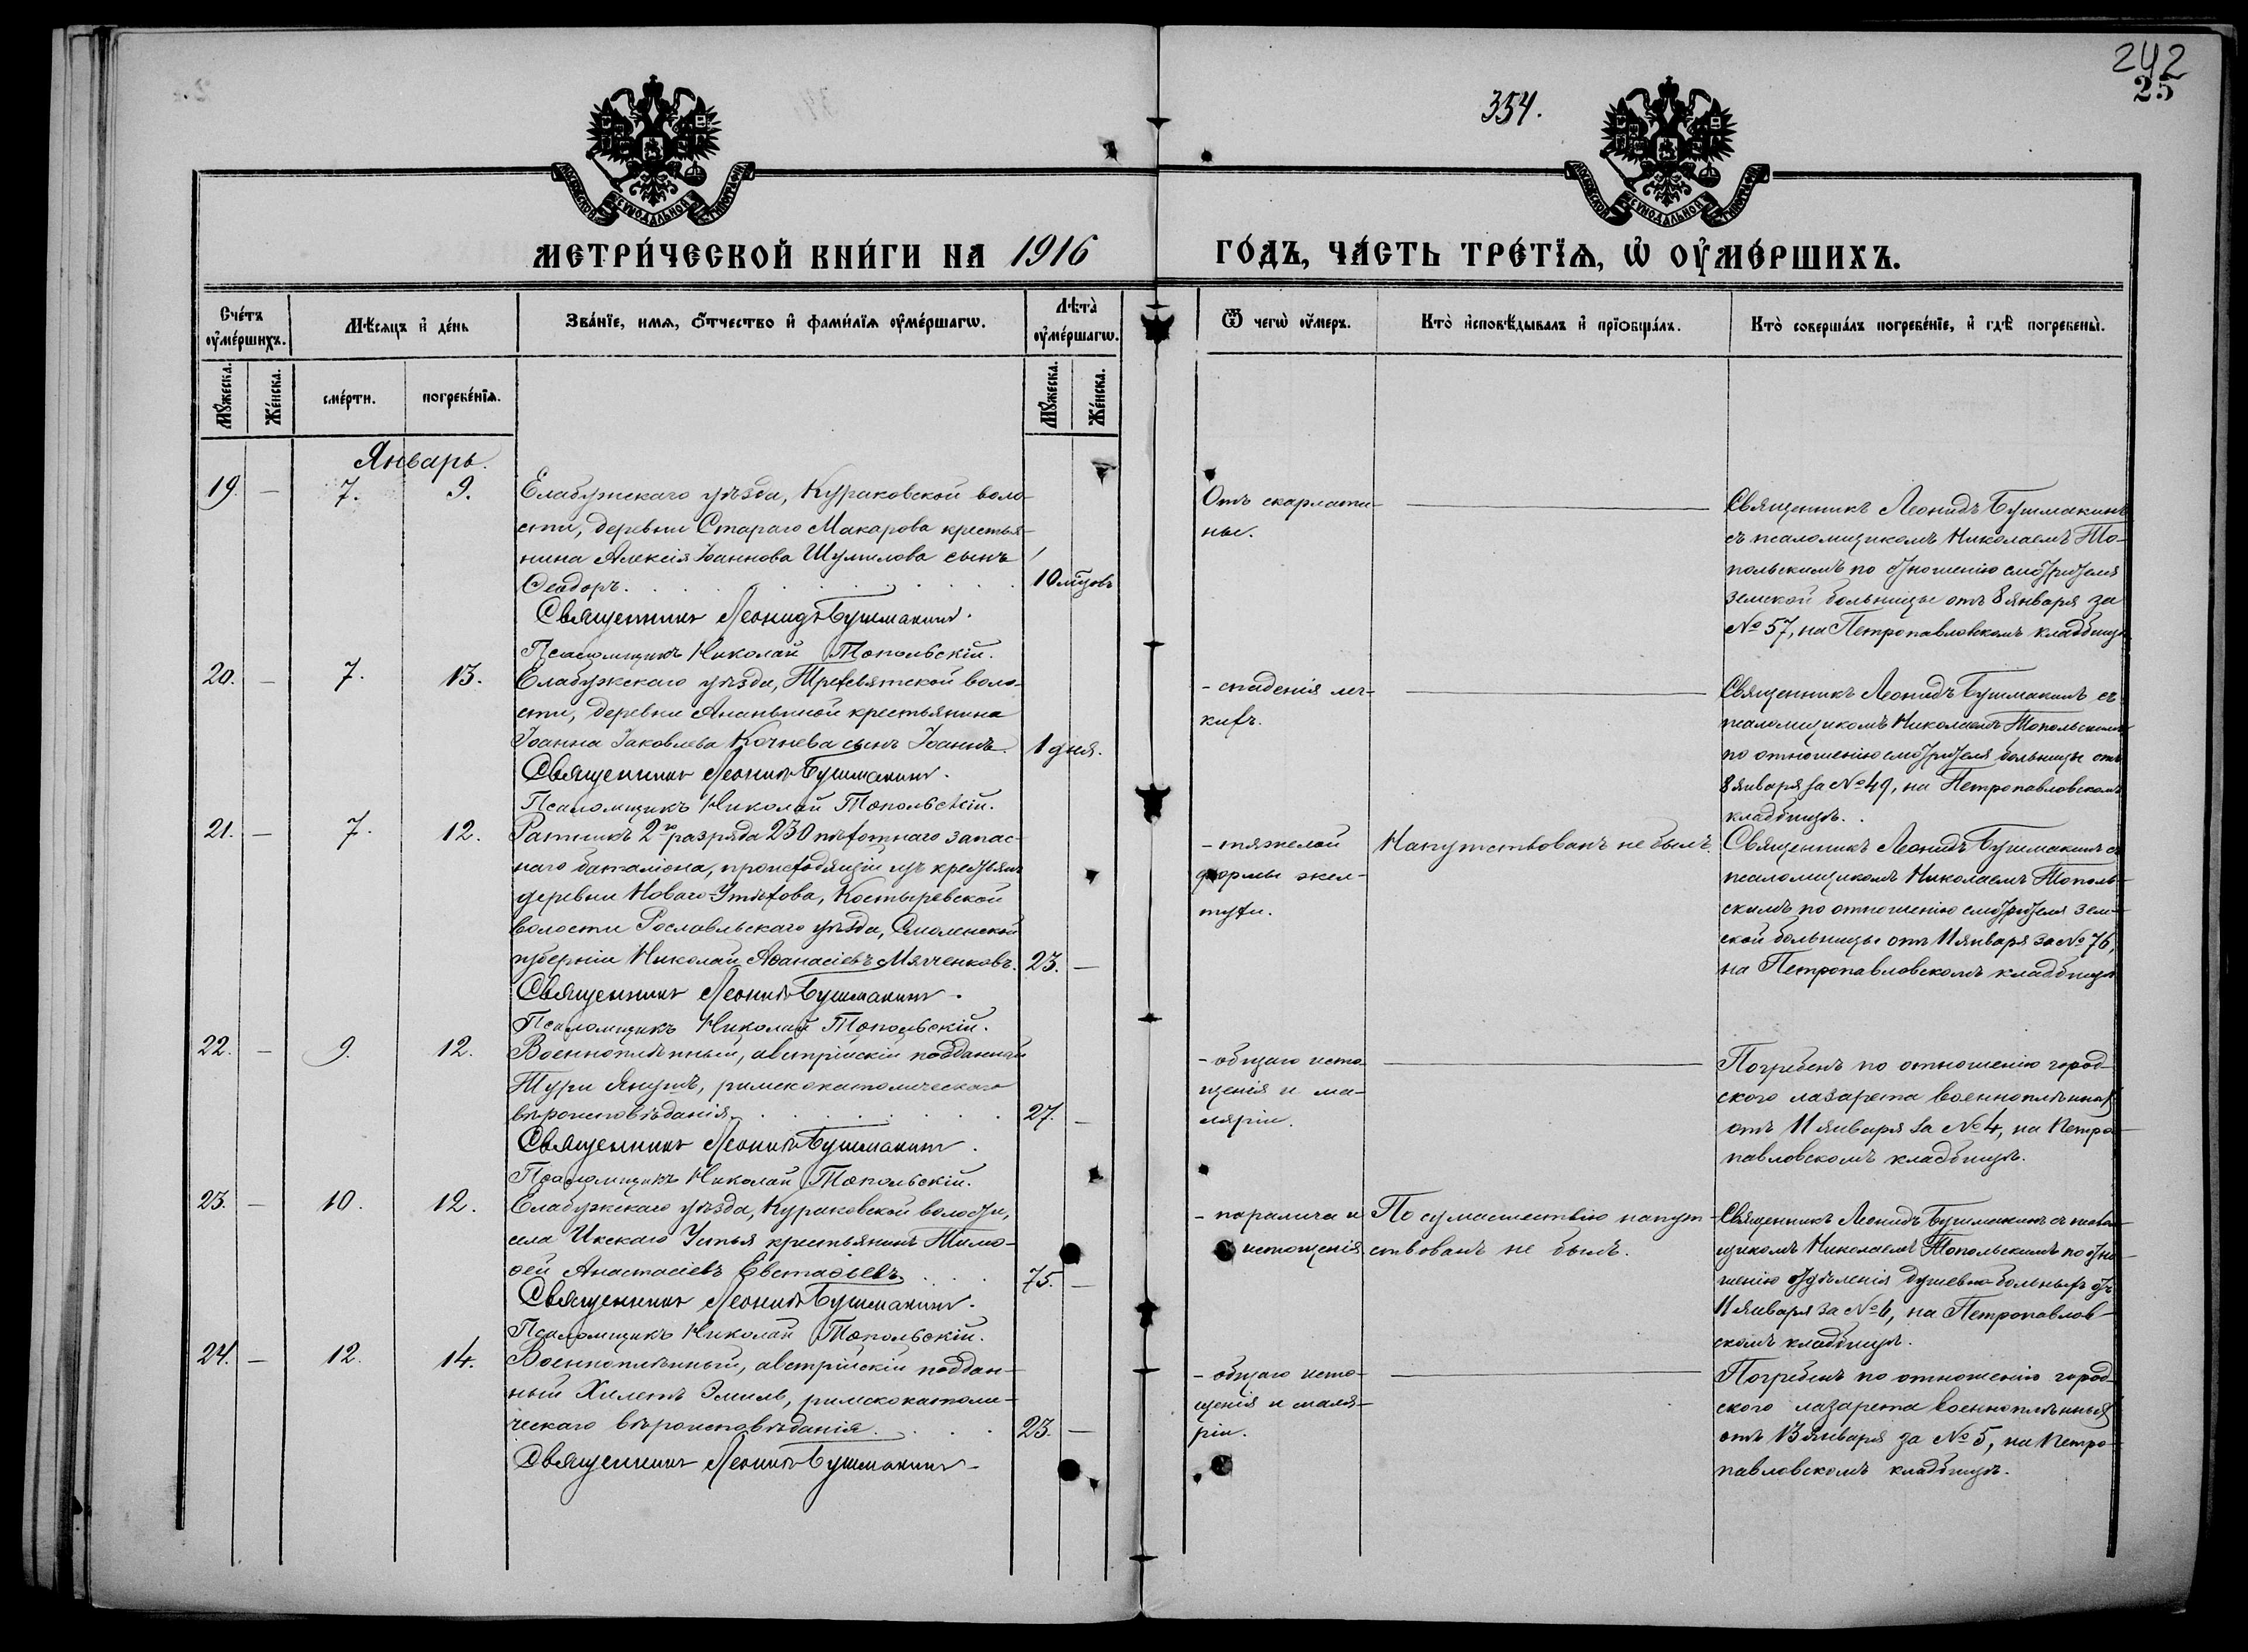 242
25
354.
МОСКОВСКОЙ СѴНОДАЛЬНОЙ ТИПОГРАФІИ
МОСКОВСКОЙ СѴНОДАЛЬНОЙ ТИПОГРАФІИ
МЕТРИ́ЧЕСКОЙ КНИ́ГИ НА 1916 ГО́ДЪ, ЧА́СТЬ ТРЕ́ТЇѦ, Ѡ҆ ОУ҆МЕ́РШИХЪ.
Сче́тъ оу҆ме́ршихъ.
Мѣ́сяцъ и҆ де́нь
Зва́нїе, имя, ѻ҆́тчество и҆ фами́лїя оу҆ме́ршагѡ.
Лѣта̀ оу҆ме́ршагѡ.
Ѿ чегѡ̀ оу҆́меръ.
Кто̀ и҆сповѣ́дывалъ и҆ прїѡбща́лъ.
Кто̀ соверша́лъ погребе́нїе, и҆ гдѣ̀ погребены̀.
Мꙋ́жеска.
Же́нска.
сме́рти.
погребе́нїя.
Мꙋ́жеска.
Же́нска.
Январь.
19. — 7. 9. Елабужскаго уѣзда, Кураковской воло-
сти, деревни Стараго Макарова крестья-
нина Алексія Іоаннова Шумилова сынъ
Ѳеодоръ. 10 мѣсцовъ
Священникъ Леонидъ Бушмакинъ.
Псаломщикъ Николай Топольскій.
Отъ скарлати-
ны.
Священникъ Леонидъ Бушмакинъ
съ псаломщикомъ Николаемъ То-
польскимъ по отношенію смотрителя
земской больницы отъ 8 января за
№ 57, на Петропавловскомъ кладбищѣ
20. — 7. 13. Елабужскаго уѣзда, Трехсвятской воло-
сти, деревни Ананьиной крестьянина
Іоанна Іаковлева Кочнева сынъ Іоаннъ. 1 дня.
Священникъ Леонидъ Бушмакинъ.
Псаломщикъ Николай Топольскій.
- спаденія лег-
кихъ.
Священникъ Леонидъ Бушмакинъ съ
псаломщикомъ Николаемъ Топольскимъ
по отношенію смотрителя больницы отъ
8 января за № 49, на Петропавловскомъ
кладбищѣ.
21. — 7. 12. Ратникъ 2го разряда 230 пѣхотнаго запас-
наго баталіона, происходящій изъ крестьянъ
деревни Новаго-Утѣхова, Костыревской
волости Рославльскаго уѣзда, Смоленской
губерніи Николай Аѳанасіевъ Мяченковъ. 23. —
Священникъ Леонидъ Бушмакинъ.
Псаломщикъ Николай Топольскій.
- тяжелой
формы жел-
тухи.
Напутствованъ не былъ.
Священникъ Леонидъ Бушмакинъ съ
псаломщикомъ Николаемъ Тополь-
скимъ по отношенію смотрителя зем-
ской больницы отъ 11 января за № 76,
на Петропавловскомъ кладбищѣ
22. — 9. 12. Военноплѣнный, австрійскій подданный
Тури Янушъ, римскокатолическаго
вѣроисповѣданія. 27. —
Священникъ Леонидъ Бушмакинъ.
Псаломщикъ Николай Топольскій.
- общаго исто-
щенія и ма-
ляріи.
Погребенъ по отношенію город-
ского лазарета военноплѣнныхъ
отъ 11 января за № 4, на Петро-
павловскомъ кладбищѣ.
23. — 10. 12. Елабужскаго уѣзда, Кураковской волости,
села Икскаго Устья крестьянинъ Тимо-
ѳей Анастасіевъ Евстаѳьевъ. 75. —
Священникъ Леонидъ Бушмакинъ.
Псаломщикъ Николай Топольскій.
- паралича и
истощенія
По сумасшествію напут-
ствованъ не былъ.
Священникъ Леонидъ Бушмакинъ съ псалом-
щикомъ Николаемъ Топольскимъ по отно-
шенію отдѣленія душевно-больныхъ отъ
11 января за № 6, на Петропавлов-
скомъ кладбищѣ.
24. — 12. 14. Военноплѣнный, австрійскій поддан-
ный Хилетъ Эмиль, римскокатоли-
ческаго вѣроисповѣданія. 23. —
Священникъ Леонидъ Бушмакинъ
- общаго исто-
щенія и маля-
ріи.
Погребенъ по отношенію город-
ского лазарета военноплѣнныхъ
отъ 13 января за № 5, на Петро-
павловскомъ кладбищѣ.